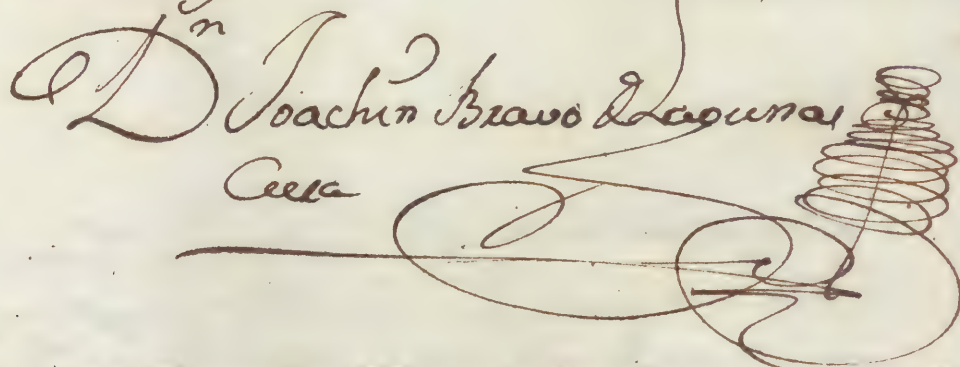 Dn Joachin Bravo de Lagunas
Cura